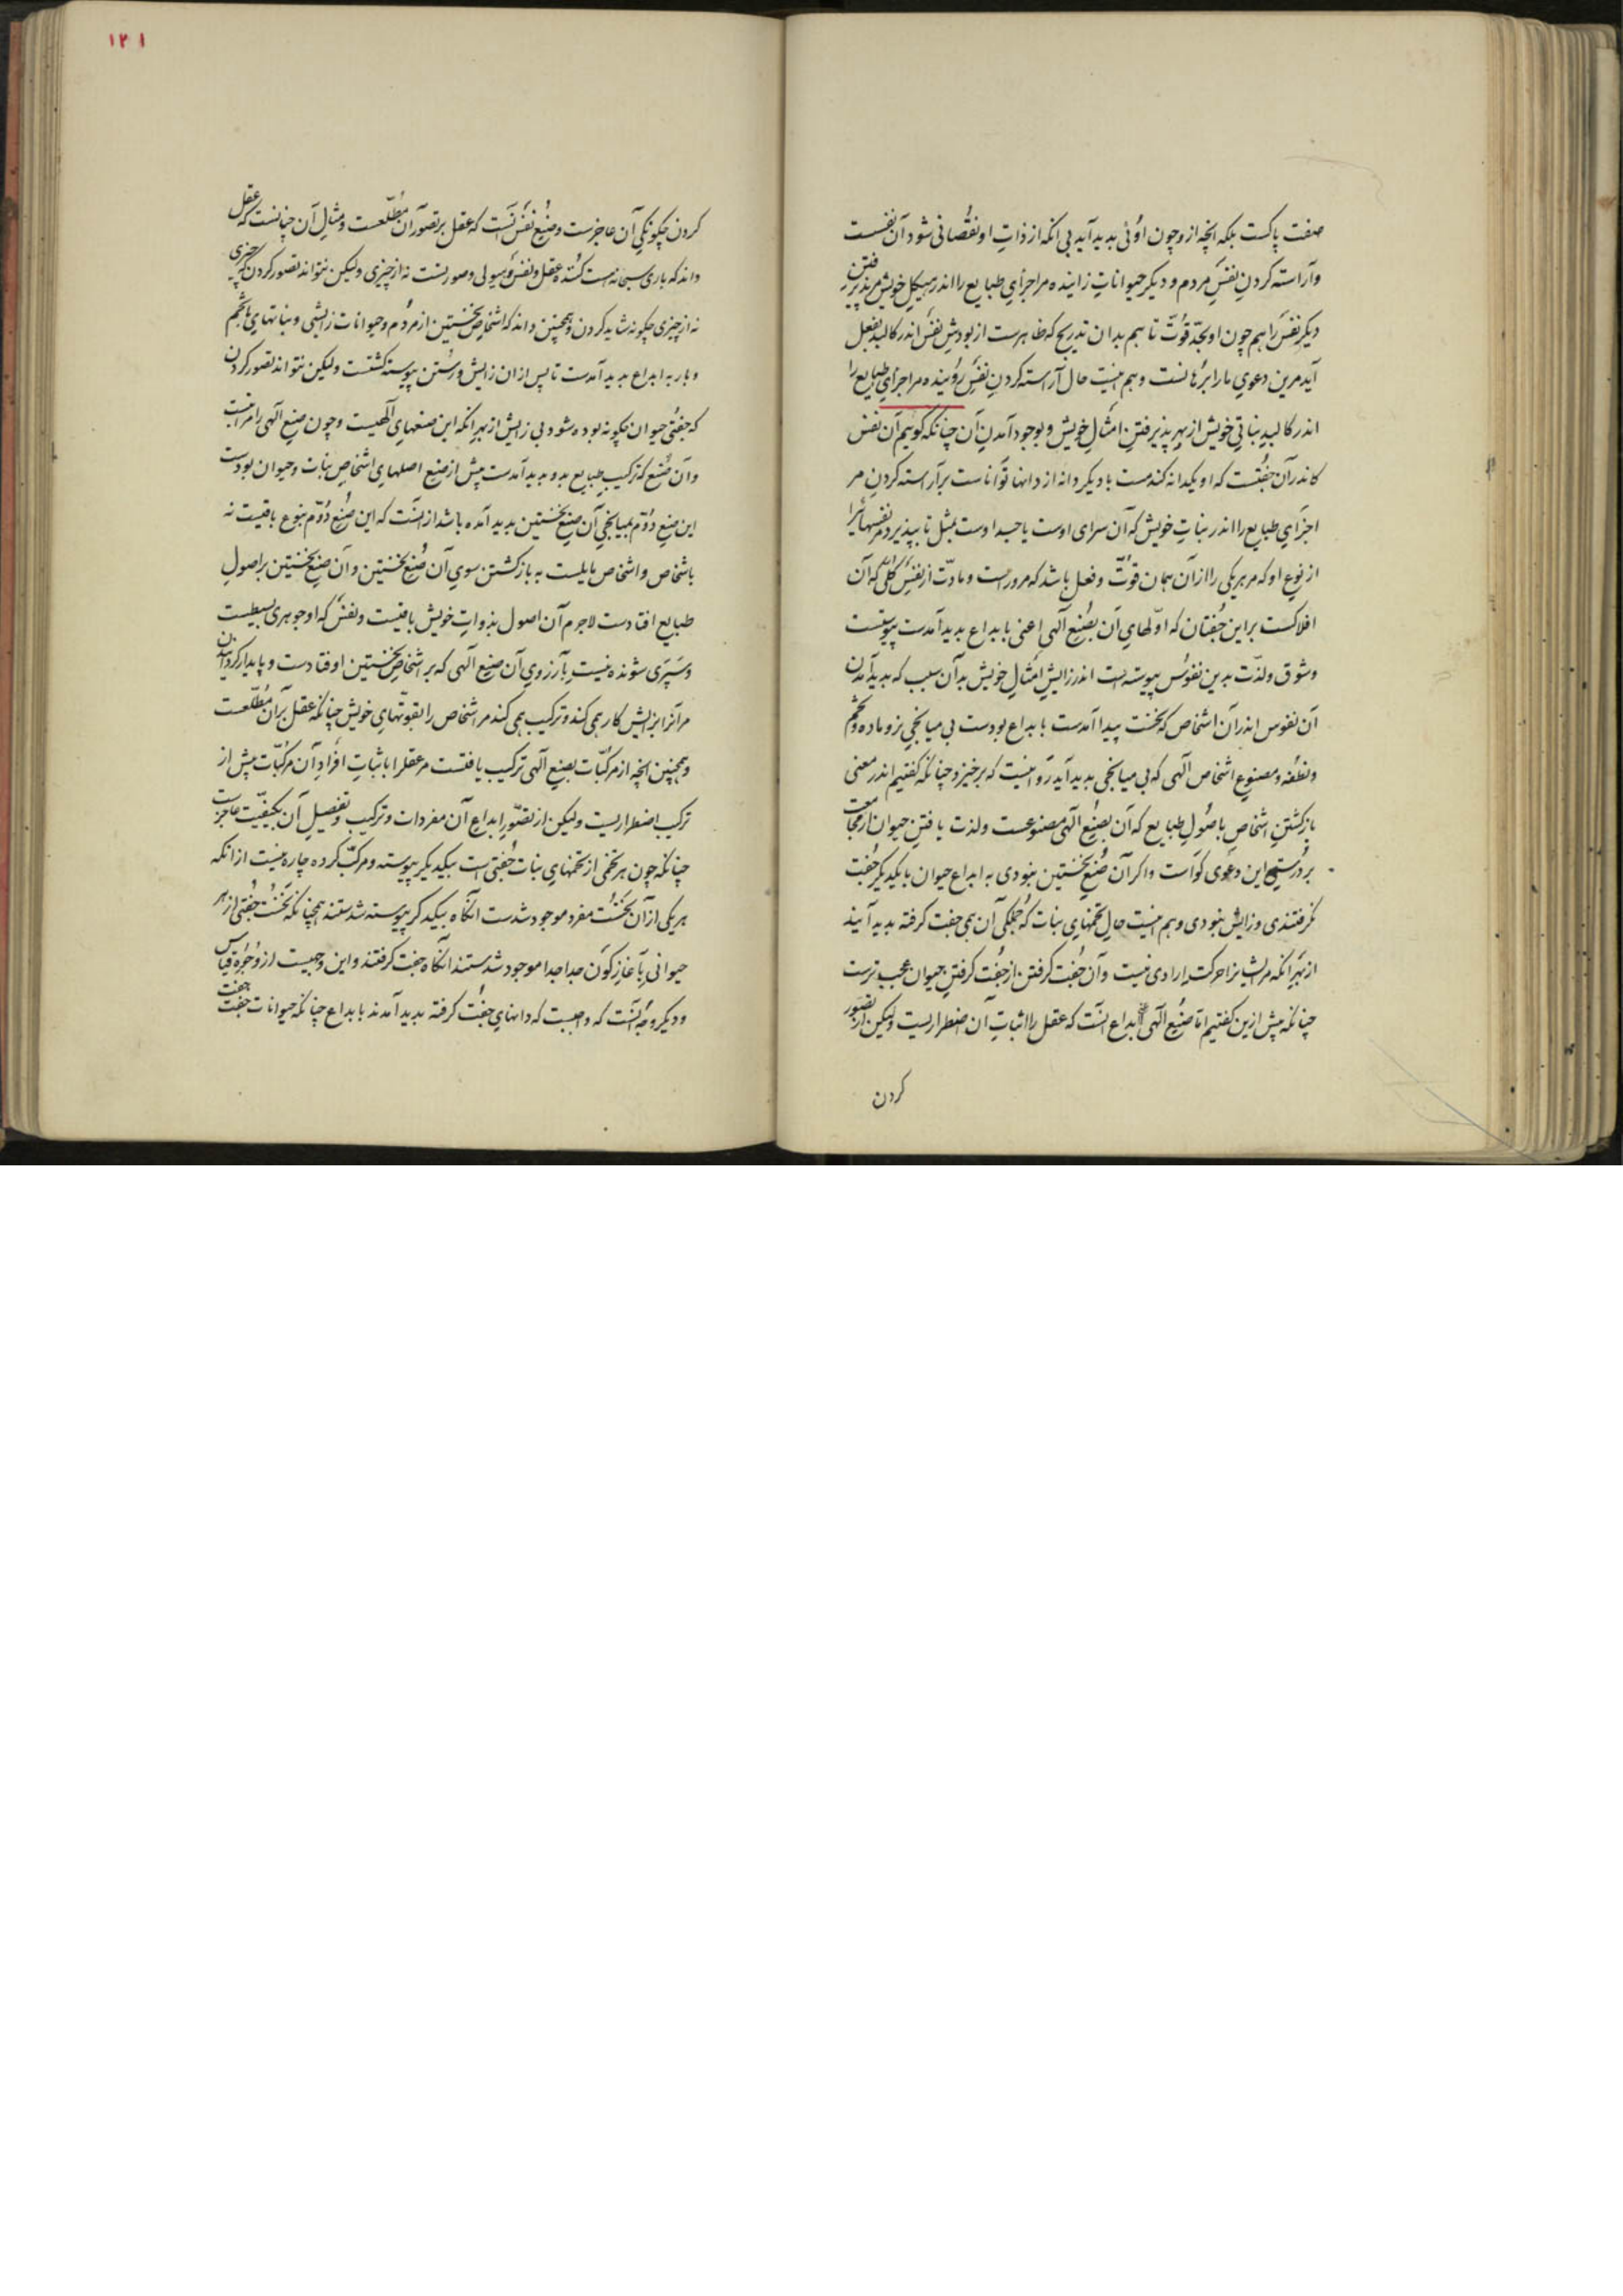 صفت پاکست بلکه آنچه ازو چون اوئی بدید آید بی آنکه از ذاتِ او نقصانی شود آن نفسست
و آراسته کردنِ نفسِ مردم و دیگر حیواناتِ زاینده مر اجزأیِ طبایع را اندر هیکلِ خویش مر پذیرفتنِ
دیگر نفس را هم چون او بحدّ قوّت تا هم بدان تدریج که ظاهرست از بودشِ نفس اندر کالبد بفعل
آید مرین دعویِ ما را برهانست و هم اینست حال آراسته کردنِ نفسِ روینده مر اجزأیِ طبایع را
اندر کالبدِ نباتیِ خویش از بهرِ پذیرفتنِ امثالِ خویش و بوجود آمدنِ آن چنانکه گوئیم آن نفس
کاندر آن جفتست که او یکدانه گندمست با دیگر دانه از دانها تواناست بر آراسته کردنِ مر
اجزأیِ طبایع را اندر نباتِ خویش که آن سرای اوست یا جسد اوست بمثل تا بپذیرد مر نفسهائی را
از نوعِ او که مر هر یکی را از آن همان قوّت و فعل باشد که مرو راست و مادّت از نفسِ کلّی که آن
افلاکست بر این جفتان که اوّلهایِ آن بصنعِ الهی اعنی بابداع بدید آمدست پیوستست
و شوق و لذّت بدین نفوس پیوسته است اندر زایشِ امثالِ خویش بدآن سبب که بدید آمدن
آن نفوس اندر آن اشخاص که نخست پیدا آمدست بابداع بودست بی میانجیِ نر و ماده و تخم
و نطفه و مصنوعِ اشخاص الهی که بی میانجی بدید آید روا نیست که برخیزد چنانکه گفتیم اندر معنی
بازگشتنِ اشخاص باصولِ طبایع که آن بصنعِ الهی مصنوعست و لذت یافتنِ حیوان از مجامعت
بر درستیِ این دعوی گواست و اگر آن صنعِ نخستین نبودی به ابداع حیوان با یکدیگر جفت
نگرفتندی و زایش نبودی و هم اینست حالِ تخمهایِ نبات که جملگیِ آن همی جفت گرفته بدید آیند
از بهر آنکه مر ایشانرا حرکت ارادی نیست و آن جفت گرفتن از جفت گرفتنِ حیوان عجب ترست
چنانکه پیش ازین گفتیم امّا صنعِ الهی ابداع آنست که عقل را اثباتِ آن اضطراریست و لیکن از تصوّر
کردن
۱۲۱
کردن چگونگیِ آن عاجزست و صنعِ نفس آنست که عقل بر تصوّر آن مطّلعست و مثالِ آن چنانست که عقل
داند که باری سبحانه هست کننده عقل و نفس و هیولی و صورتست نه از چیزی و لیکن نتواند تصوّر کردن که چیزی
نه از چیزی چگونه شاید کردن و همچنین داند که اشخاصِ نخستین از مردم و حیوانات زایشی و نباتهایِ با تخم
و بار به ابداع بدید آمدست تا پس از آن زایش و رستن پیوسته گشتست و لیکن نتواند تصوّر کردن
که جفتیِ حیوان چگونه بوده شود بی زایش از بهر آنکه این صنعهایِ الهیست و چون صنعِ الهی را مراتبست
و آن صنع که ترکیبِ طبایع بدو بدید آمدست پیش از صنعِ اصلهایِ اشخاصِ نبات و حیوان بودست
این صنعِ دوّم بمیانجیِ آن صنعِ نخستین بدید آمده باشد از آنست که این صنعِ دوّم بنوع باقیست نه
باشخاص و اشخاص مایلست به بازگشتن سویِ آن صنعِ نخستین و آن صنعِ نخستین بر اصولِ
طبایع افتادست لاجرم آن اصول بذواتِ خویش باقیست و نفس که او جوهری بسیطست
و سپری شونده نیست بآرزویِ آن صنعِ الهی که بر اشخاصِ نخستین اوفتادست و پایدار گردانیدن
مر آنرا بزایش کار همی کند و ترکیب همی کند مر اشخاص را بقوّتهایِ خویش چنانکه عقل بر آن مطّلعست
و همچنین آنچه از مرکّبات بصنعِ الهی ترکیب یافتست مر عقل را باثباتِ افرادِ آن مرکّبات پیش از
ترکیب اضطراریست و لیکن از تصوّرِ ابداعِ آن مفردات و ترکیب و تفصیلِ آن بکیفیّت عاجزست
چنانکه چون هر تخمی از تخمهایِ نبات جفتی است بیکدیگر پیوسته و مرکّب کرده چاره نیست از آنکه
هر یکی از آن نخست مفرد موجود شدست آنگاه بیکدیگر پیوسته شدستند همچنانکه نخست جفتی از هر
حیوانی بآغازِ کون جدا جدا موجود شدستند آنگاه جفت گرفتند و این وجهیست از وجوهِ قیاس
و دیگر وجه آنست که واجبست که دانهایِ جفت گرفته بدید آمدند بابداع چنانکه حیوانات جفت جفت